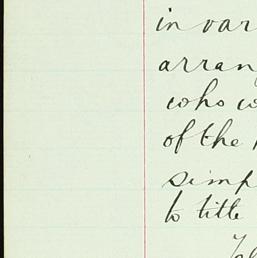 in var
arran
who w
of the
simp
to title